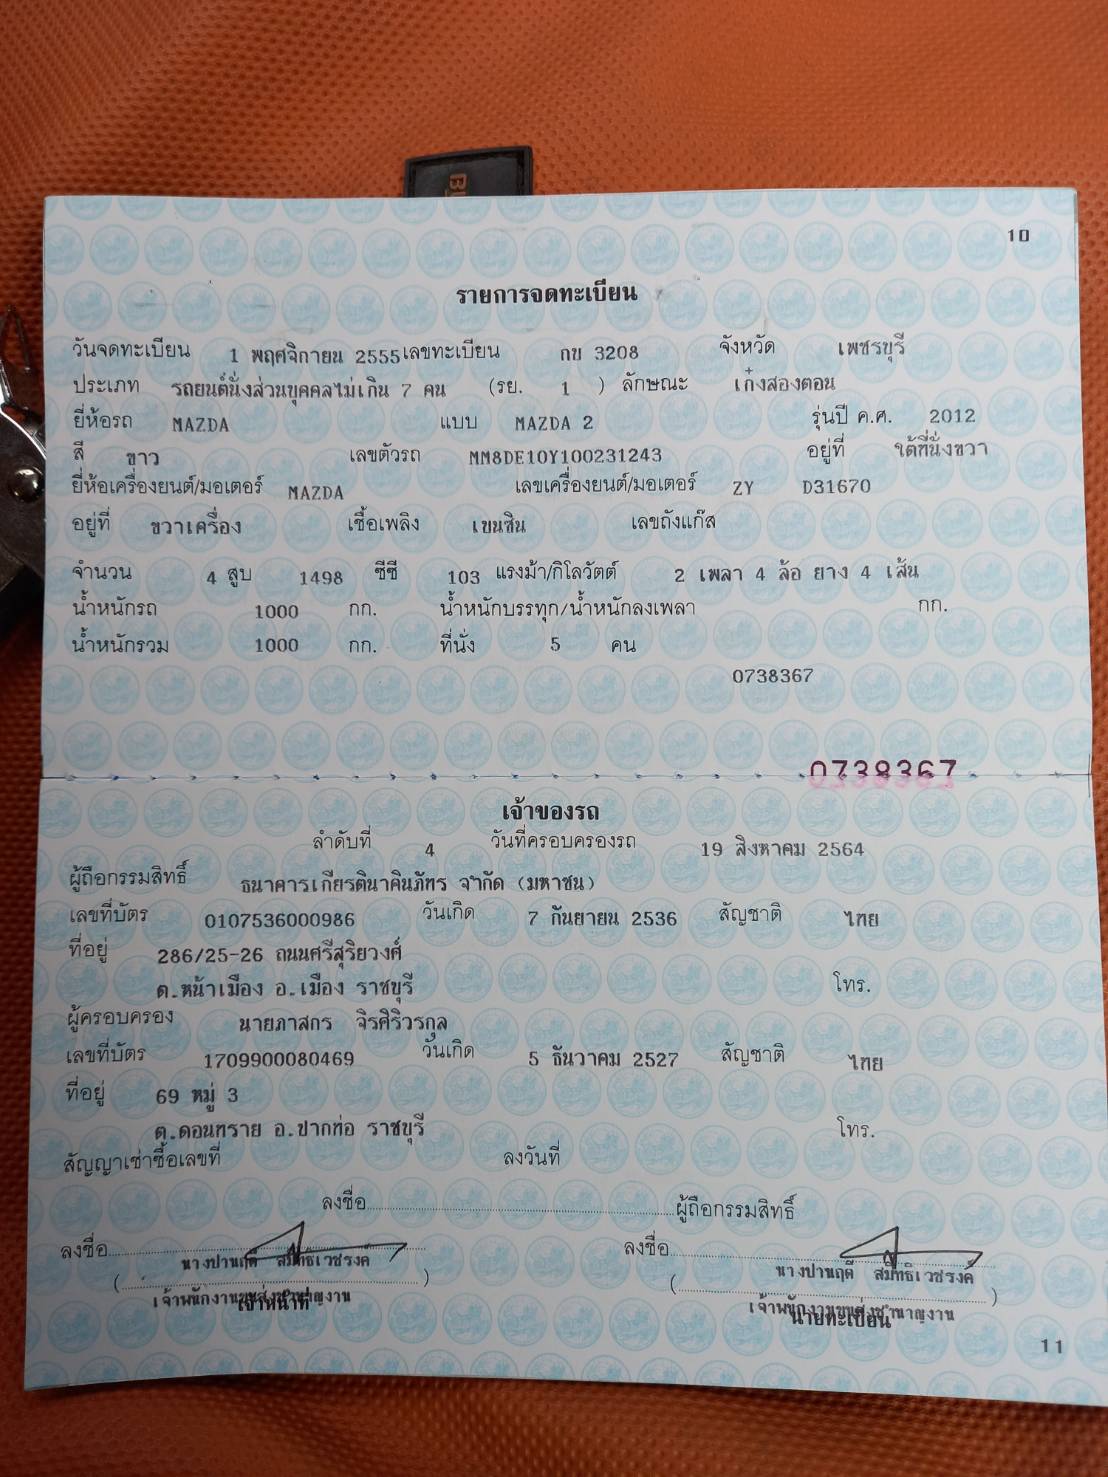 BL
10
รายการจดทะเบียน
วันจดทะเบียน 1 พฤศจิกายน 2555 เลขทะเบียน กข 3208 จังหวัด เพชรบุรี
ประเภท รถยนต์นั่งส่วนบุคคลไม่เกิน 7 คน (รย. 1 ) ลักษณะ เก๋งสองตอน
ยี่ห้อรถ MAZDA แบบ MAZDA 2 รุ่นปี ค.ศ. 2012
สี ขาว เลขตัวรถ MM8DE10Y100231243 อยู่ที่ ใต้ที่นั่งขวา
ยี่ห้อเครื่องยนต์/มอเตอร์ MAZDA เลขเครื่องยนต์/มอเตอร์ ZY D31670
อยู่ที่ ขวาเครื่อง เชื้อเพลิง เบนซิน เลขถังแก๊ส
จำนวน 4 สูบ 1498 ซีซี 103 แรงม้า/กิโลวัตต์ 2 เพลา 4 ล้อ ยาง 4 เส้น
น้ำหนักรถ 1000 กก. น้ำหนักบรรทุก/น้ำหนักลงเพลา กก.
น้ำหนักรวม 1000 กก. ที่นั่ง 5 คน
0738367
0738367
เจ้าของรถ
ลำดับที่ 4 วันที่ครอบครองรถ 19 สิงหาคม 2564
ผู้ถือกรรมสิทธิ์ ธนาคารเกียรตินาคินภัทร จำกัด (มหาชน)
เลขที่บัตร 0107536000986 วันเกิด 7 กันยายน 2536 สัญชาติ ไทย
ที่อยู่ 286/25-26 ถนนศรีสุริยวงศ์
ต.หน้าเมือง อ.เมือง ราชบุรี โทร.
ผู้ครอบครอง นายภาสกร จิรศิริวรกุล
เลขที่บัตร 1709900080469 วันเกิด 5 ธันวาคม 2527 สัญชาติ ไทย
ที่อยู่ 69 หมู่ 3
ต.ดอนทราย อ.ปากท่อ ราชบุรี โทร.
สัญญาเช่าซื้อเลขที่ ลงวันที่
ลงชื่อ ผู้ถือกรรมสิทธิ์
ลงชื่อ ลงชื่อ
นางปานฤดี สมิทธิเวชรงค์ นางปานฤดี สมิทธิเวชรงค์
( ) ( )
เจ้าพนักงานขนส่งชำนาญงาน เจ้าพนักงานขนส่งชำนาญงาน
เจ้าหน้าที่ นายทะเบียน
11